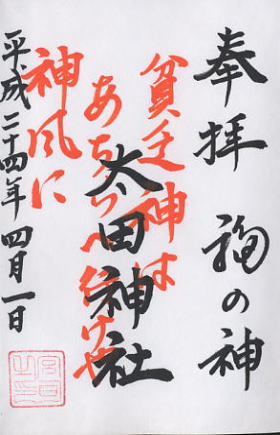 奉拝 福の神
貧乏神は
あちらへ行けや
太田神社
神風に
平成二十四年四月一日